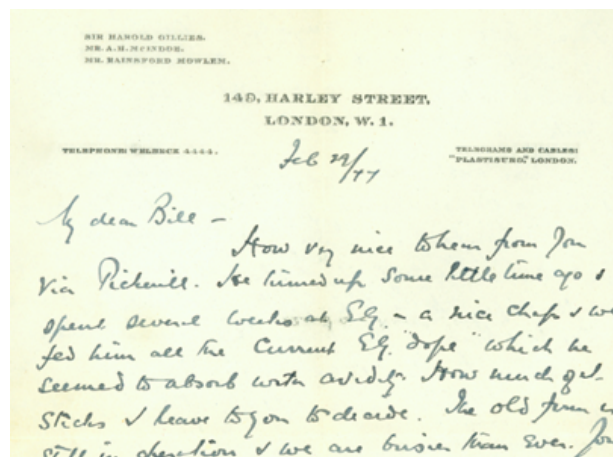 SIR HAROLD GILLIES.
MR. A. H. McINDOE.
MR. RAINSFORD MOWLEM.
149, HARLEY STREET,
LONDON, W. 1.
TELEPHONE: WELBECK 4444.
TELEGRAMS AND CABLES:
"PLASTISURG," LONDON.
Feb 29/44
My dear Bill –
How very nice to hear from you
via Pickerill. He turned up some little time ago &
spent several weeks at E.G. – a nice chap & we
fed him all the current E.G. "dope" which he
seemed to absorb with avidity. How much of it
sticks I leave to you to decide. The old firm is
still in operation & we are busier than ever.